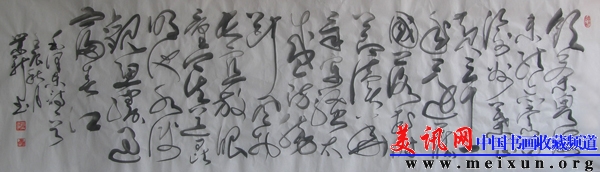 饮茶粤海
未能忘索句
渝州叶正
黄三十一
年还旧
国落花时
节读华
章牢骚太
盛防肠
断风物
长宜放眼
量莫道昆
明池水浅
观鱼胜过
富春江
毛泽东诗一首
壬辰秋月
书
美讯网 中国书画收藏频道
www.meixun.org